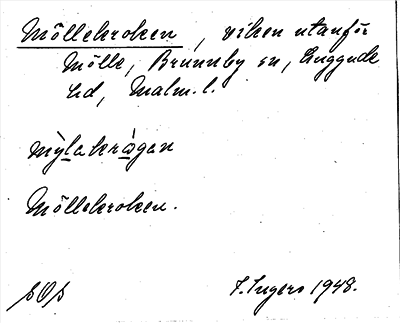 Möllekroken, viken utanför
Mölle, Brunnby sn, Luggude
hd, Malm. l.
mỳlakrågan
Möllekroken.
sOs
F. Ingers 1948.